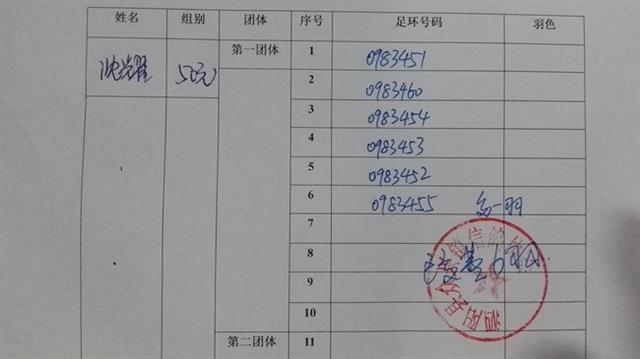 姓名 组别 团体 序号 足环号码 羽色
沈 50元 第一团体 1 0983451
2 0983460
3 0983454
4 0983453
5 0983452
6 0983455 多一羽
7
8
9
10
第二团体 11
泗阳县 信鸽